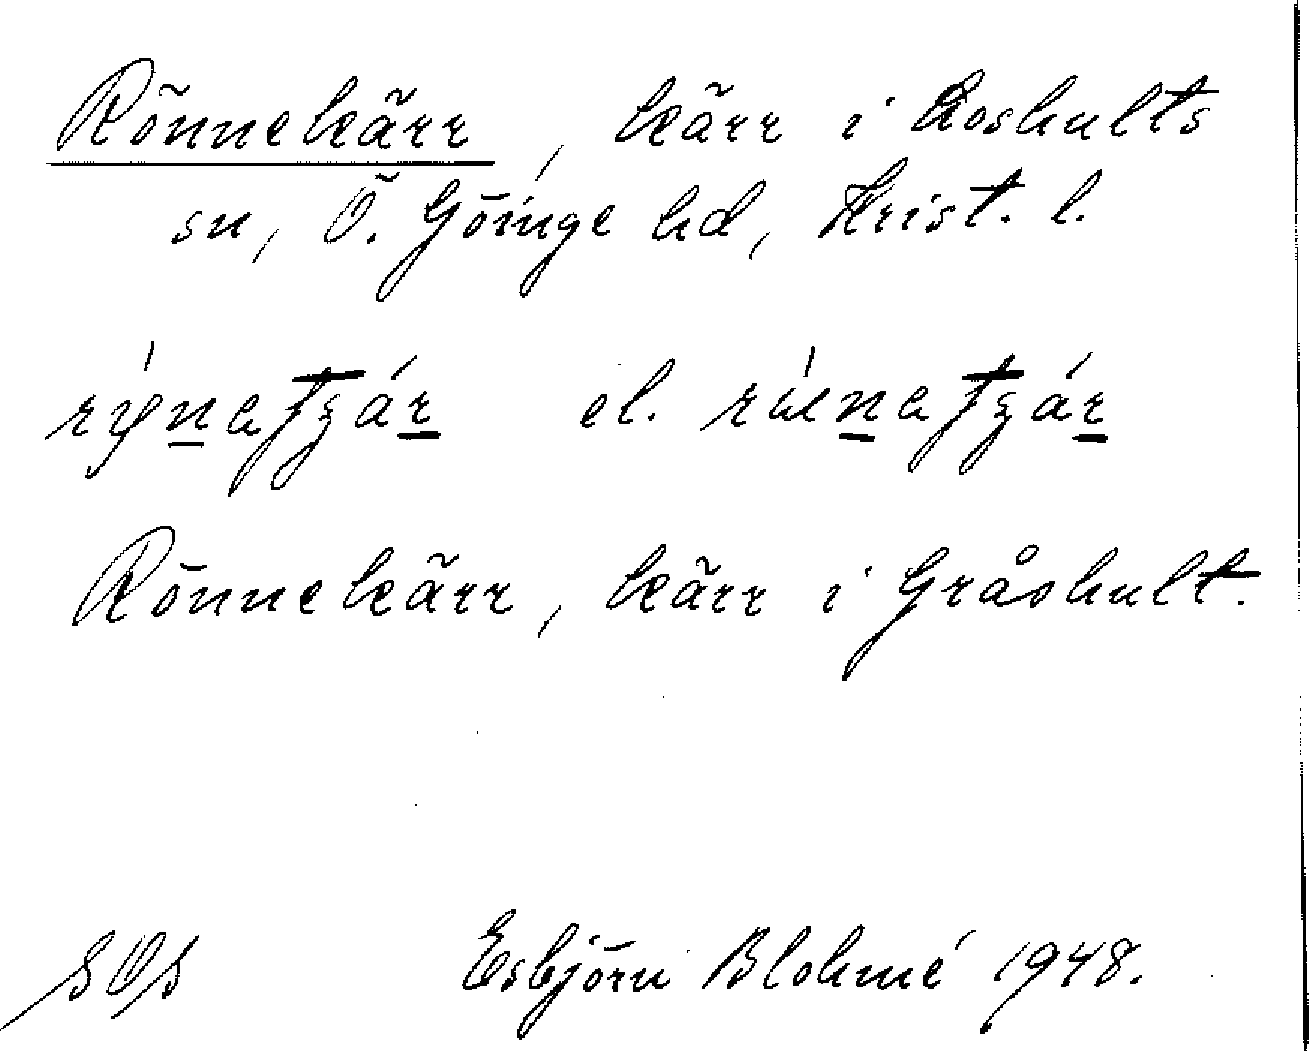 Rönnekärr, kärr i Loshults
sn, Ö. Göinge hd, Krist. l.
el.
Rönnekärr, kärr i Gråshult.
SOS Esbjörn Blohmé 1948.